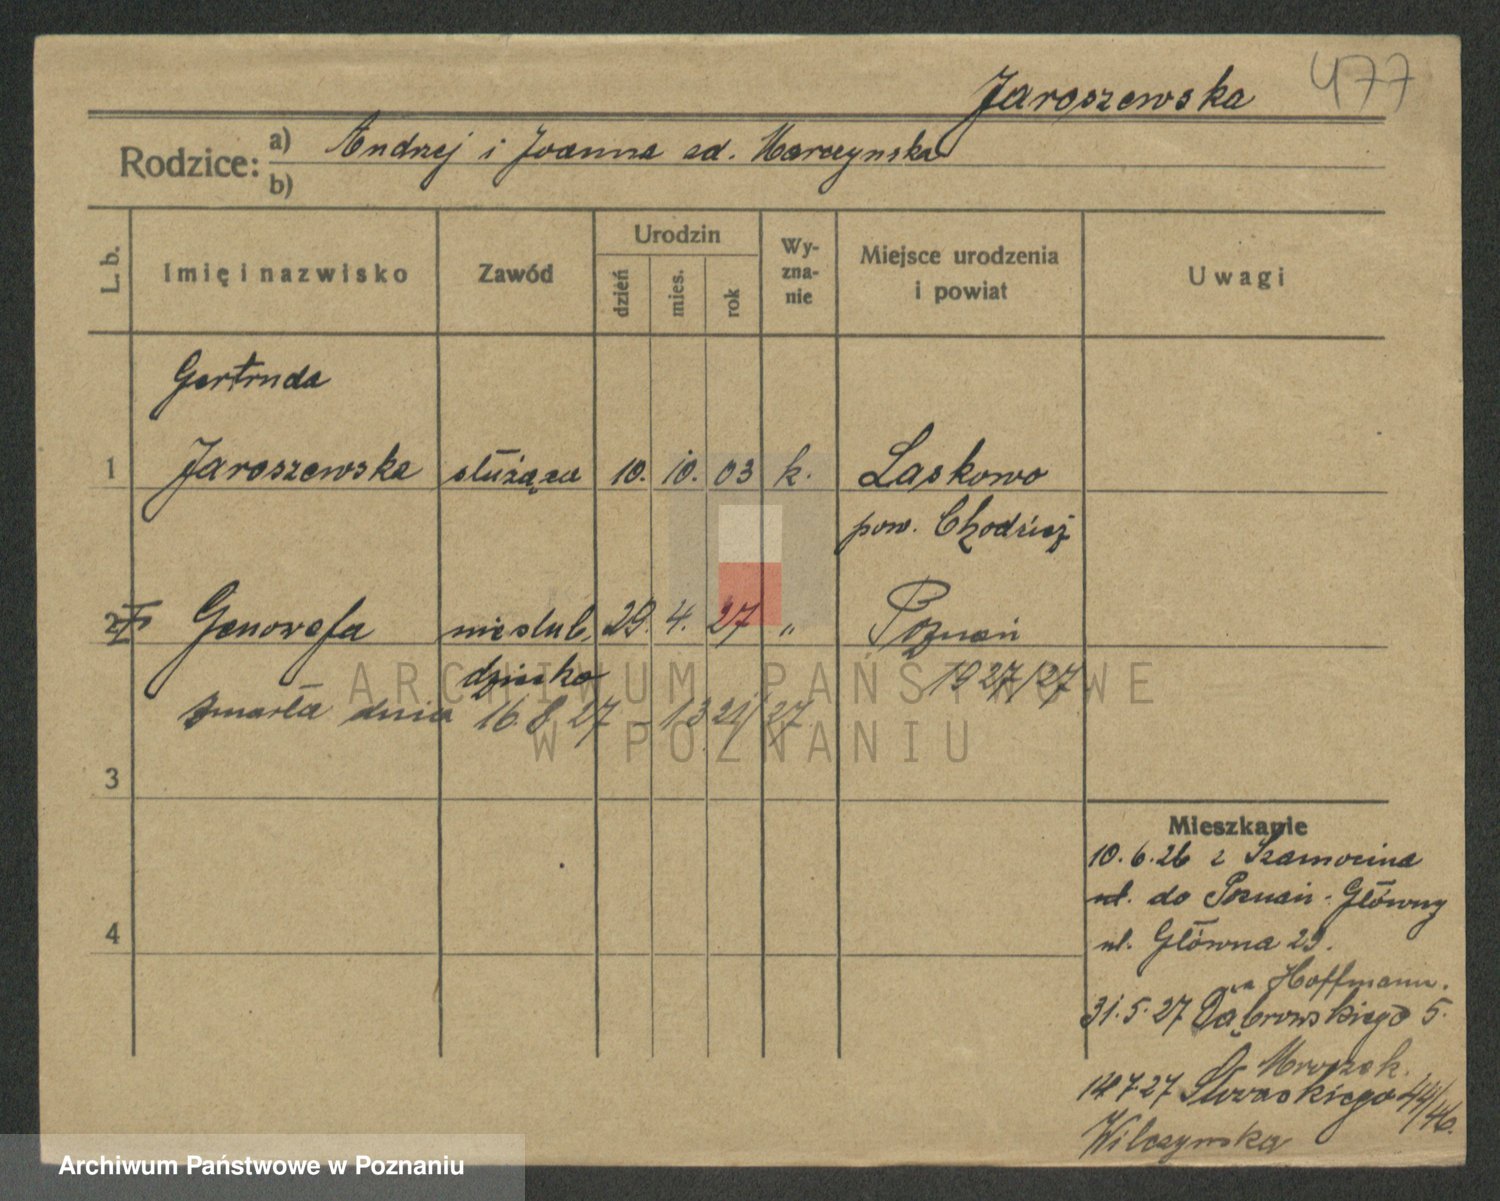 477
Jaroszewska
Rodzice: a) Andrzej i Joanna zd. Marczynska
b)
L. b. Imię i nazwisko Zawód Urodzin dzień mies. rok Wyzna-nie Miejsce urodzenia i powiat Uwagi
Gertruda
1 Jaroszewska służąca 10. 10. 03 k. Laskowo
pow. Chodzież
2 Genowefa nieślub. 29. 4. 27 " Poznań
dziecko 1927/27
zmarła dnia 16.8.27 - 1321/27
3
4
Mieszkanie
10.6.26 z Szamocina
ul. do Poznań-Główny
ul. Główna 29.
u Hoffmann.
31.5.27 Dąbrowskiego 5.
Mroczek.
7.27 Słowackiego 44/46.
Wilczynska
ARCHIWUM PAŃSTWOWE
W POZNANIU
Archiwum Państwowe w Poznaniu